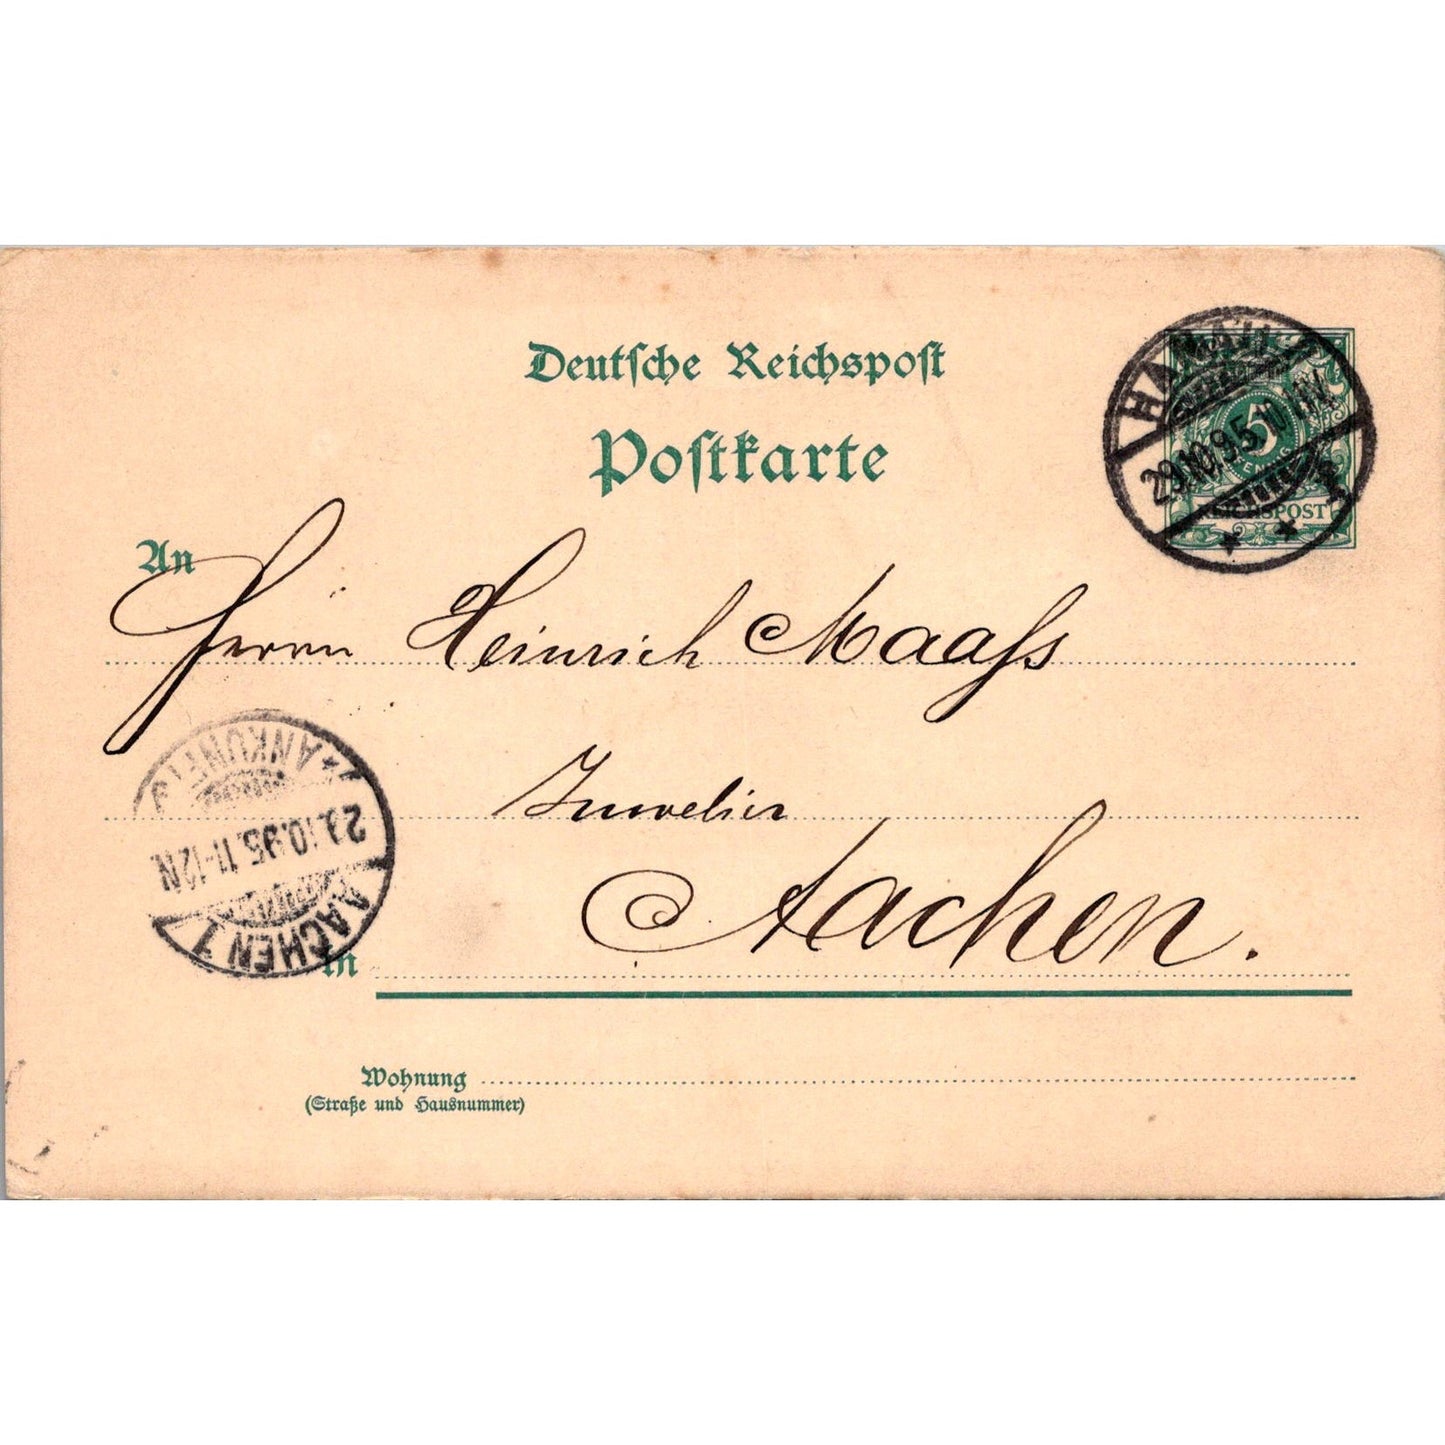 Deutsche Reichspost
Postkarte
HANAU
29.10.95. 10-11V.
5
PFENNIG
REICHSPOST
An
Herrn Heinrich Maaſs
Juwelier
in Aachen.
ANKUNFT
29.10.95.11-12N
AACHEN 1
Wohnung
(Straße und Hausnummer)